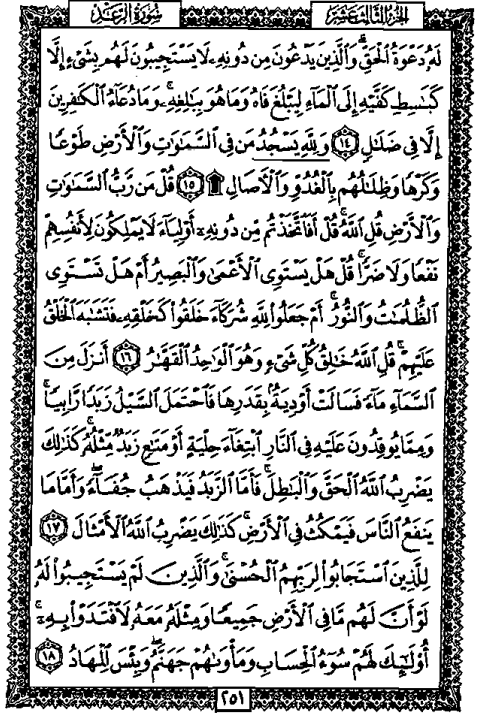 سُورَةُ الرَّعْدِ الجُزْءُ الثَّالِثَ عَشَرَ
لَهُۥ دَعْوَةُ ٱلْحَقِّ ۖ وَٱلَّذِينَ يَدْعُونَ مِن دُونِهِۦ لَا يَسْتَجِيبُونَ لَهُم بِشَىْءٍ إِلَّا
كَبَـٰسِطِ كَفَّيْهِ إِلَى ٱلْمَآءِ لِيَبْلُغَ فَاهُ وَمَا هُوَ بِبَـٰلِغِهِۦ ۚ وَمَا دُعَآءُ ٱلْكَـٰفِرِينَ
إِلَّا فِى ضَلَـٰلٍ ١٤ وَلِلَّهِ يَسْجُدُ مَن فِى ٱلسَّمَـٰوَٰتِ وَٱلْأَرْضِ طَوْعًا
وَكَرْهًا وَظِلَـٰلُهُم بِٱلْغُدُوِّ وَٱلْـَٔاصَالِ ۩ ١٥ قُلْ مَن رَّبُّ ٱلسَّمَـٰوَٰتِ
وَٱلْأَرْضِ قُلِ ٱللَّهُ ۚ قُلْ أَفَٱتَّخَذْتُم مِّن دُونِهِۦٓ أَوْلِيَآءَ لَا يَمْلِكُونَ لِأَنفُسِهِمْ
نَفْعًا وَلَا ضَرًّا ۚ قُلْ هَلْ يَسْتَوِى ٱلْأَعْمَىٰ وَٱلْبَصِيرُ أَمْ هَلْ تَسْتَوِى
ٱلظُّلُمَـٰتُ وَٱلنُّورُ ۗ أَمْ جَعَلُوا۟ لِلَّهِ شُرَكَآءَ خَلَقُوا۟ كَخَلْقِهِۦ فَتَشَـٰبَهَ ٱلْخَلْقُ
عَلَيْهِمْ ۚ قُلِ ٱللَّهُ خَـٰلِقُ كُلِّ شَىْءٍ وَهُوَ ٱلْوَٰحِدُ ٱلْقَهَّـٰرُ ١٦ أَنزَلَ مِنَ
ٱلسَّمَآءِ مَآءً فَسَالَتْ أَوْدِيَةٌۢ بِقَدَرِهَا فَٱحْتَمَلَ ٱلسَّيْلُ زَبَدًا رَّابِيًا ۚ
وَمِمَّا يُوقِدُونَ عَلَيْهِ فِى ٱلنَّارِ ٱبْتِغَآءَ حِلْيَةٍ أَوْ مَتَـٰعٍ زَبَدٌ مِّثْلُهُۥ ۚ كَذَٰلِكَ
يَضْرِبُ ٱللَّهُ ٱلْحَقَّ وَٱلْبَـٰطِلَ ۚ فَأَمَّا ٱلزَّبَدُ فَيَذْهَبُ جُفَآءً ۖ وَأَمَّا مَا
يَنفَعُ ٱلنَّاسَ فَيَمْكُثُ فِى ٱلْأَرْضِ ۚ كَذَٰلِكَ يَضْرِبُ ٱللَّهُ ٱلْأَمْثَالَ ١٧
لِلَّذِينَ ٱسْتَجَابُوا۟ لِرَبِّهِمُ ٱلْحُسْنَىٰ ۚ وَٱلَّذِينَ لَمْ يَسْتَجِيبُوا۟ لَهُۥ
لَوْ أَنَّ لَهُم مَّا فِى ٱلْأَرْضِ جَمِيعًا وَمِثْلَهُۥ مَعَهُۥ لَٱفْتَدَوْا۟ بِهِۦٓ ۚ
أُو۟لَـٰٓئِكَ لَهُمْ سُوٓءُ ٱلْحِسَابِ وَمَأْوَىٰهُمْ جَهَنَّمُ ۖ وَبِئْسَ ٱلْمِهَادُ ١٨
٢٥١